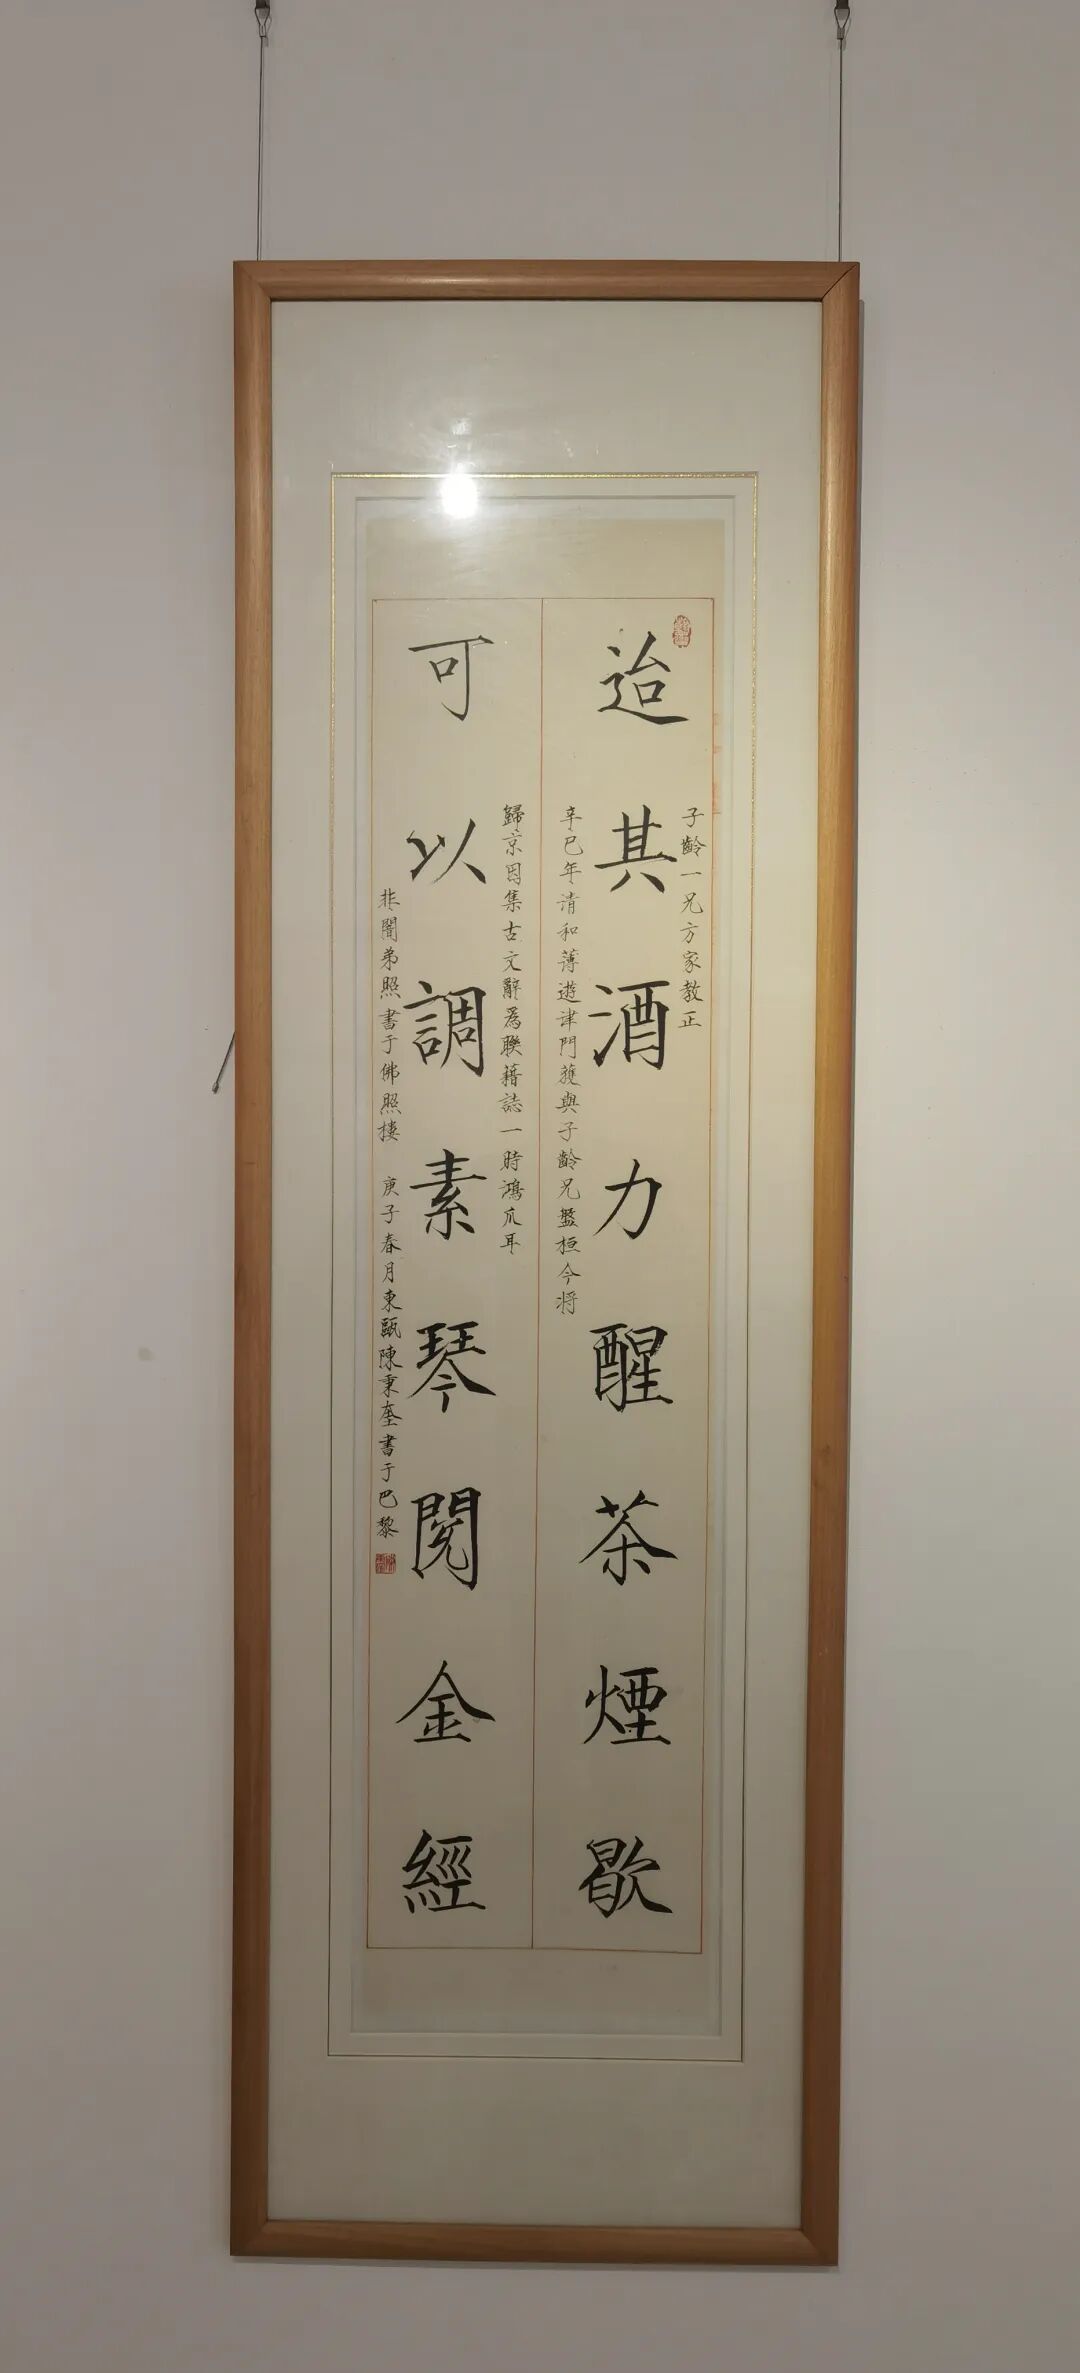 子齡一兄方家教正
迨其酒力醒茶煙歇
辛巳年清和薄遊津門獲與子齡兄盤桓今將
歸京因集古文辭為聯藉誌一時鴻爪耳
可以調素琴閱金經
非闇弟照書于佛照樓 庚子春月東甌陳秉奎書于巴黎